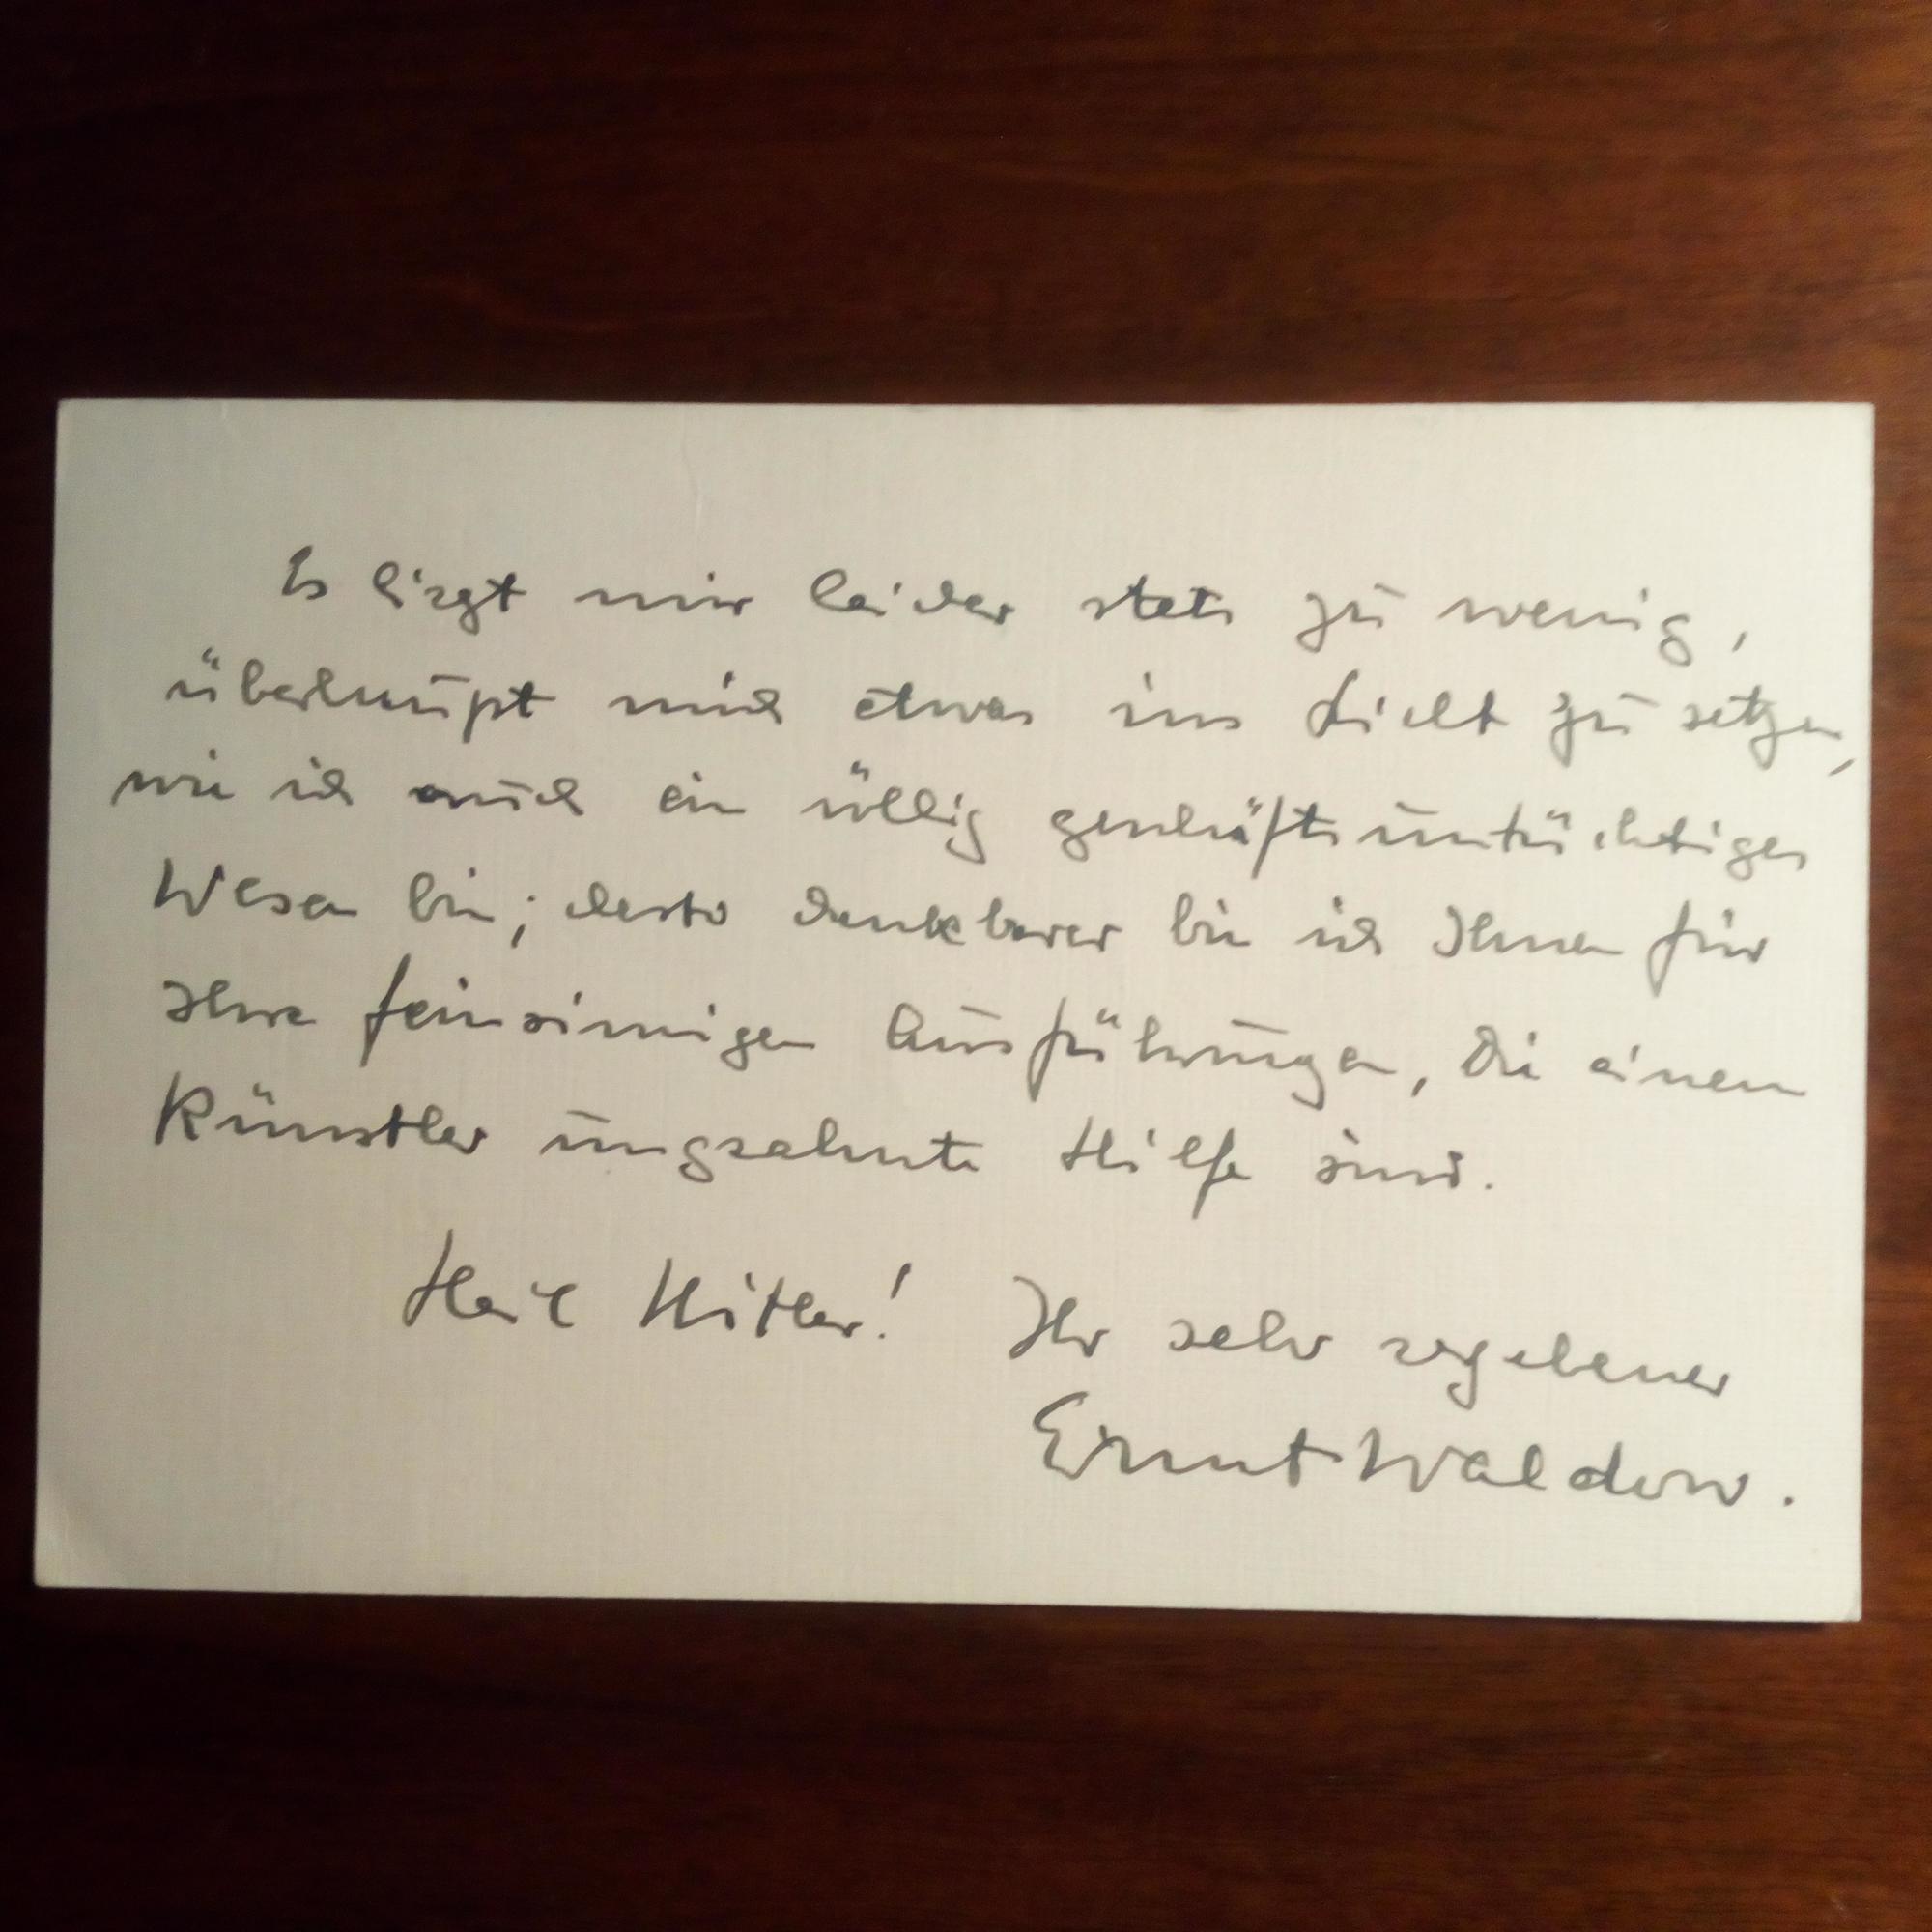 Es liegt mir leider stets zu wenig,
überhaupt mich etwas ins Licht zu setzen,
wie ich auch ein völlig geschäftsuntüchtiges
Wesen bin; desto dankbarer bin ich Ihnen für
Ihre feinsinnigen Ausführungen, die einem
Künstler ungeahnte Hilfe sind.
Heil Hitler! Ihr sehr ergebener
Ernst Waldow.